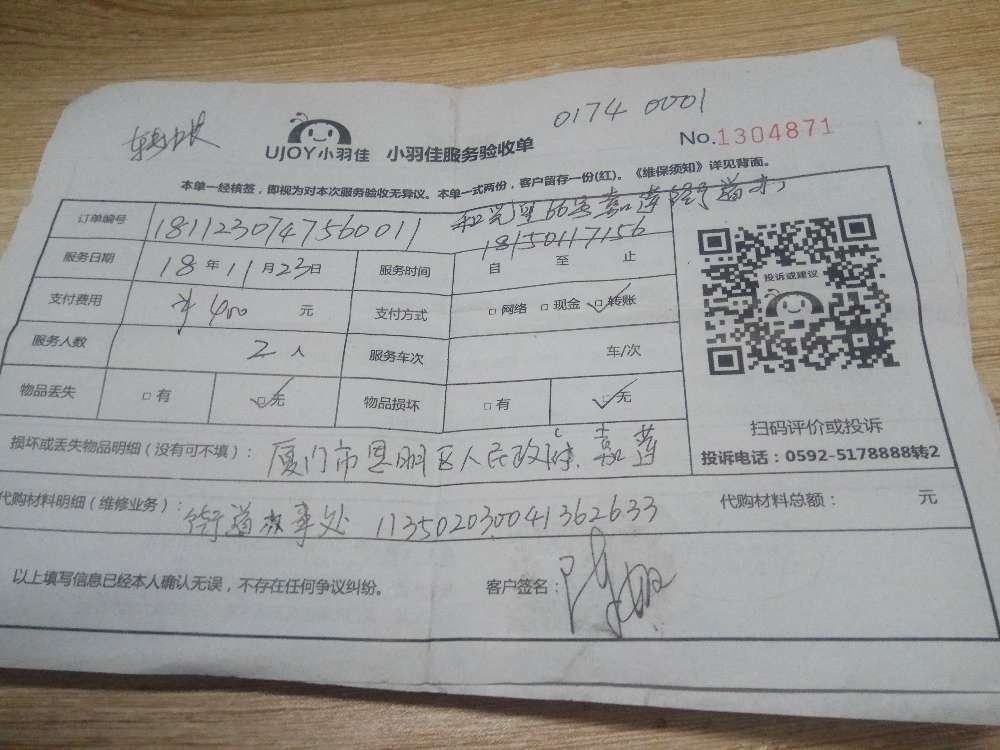 0174 0001
UJOY小羽佳 小羽佳服务验收单 No.1304871
本单一经核签，即视为对本次服务验收无异议。本单一式两份，客户留存一份(红)。《维保须知》详见背面。
订单编号 1811230747560011 和光里66号嘉莲街道办
18150117156
服务日期 18年11月23日 服务时间 自 至 止
支付费用 ¥400 元 支付方式 □网络 □现金 □转账
服务人数 2人 服务车次 车/次
物品丢失 □有 □无 物品损坏 □有 □无
投诉或建议
扫码评价或投诉
投诉电话：0592-5178888转2
损坏或丢失物品明细（没有可不填）： 厦门市思明区人民政府嘉莲
代购材料明细（维修业务）： 街道办事处 113502030041362633 代购材料总额： 元
以上填写信息已经本人确认无误，不存在任何争议纠纷。 客户签名：